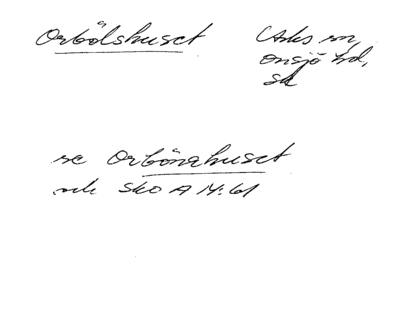 Orbålshuset Asks sn,
Onsjö hd,
Sk
se Orbönahuset
och Sko A 14:61